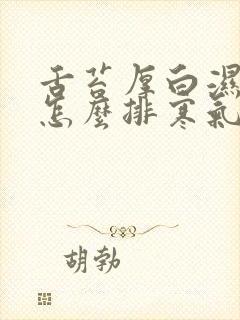 舌苔厚白濕
怎麼排寒氣
胡勃